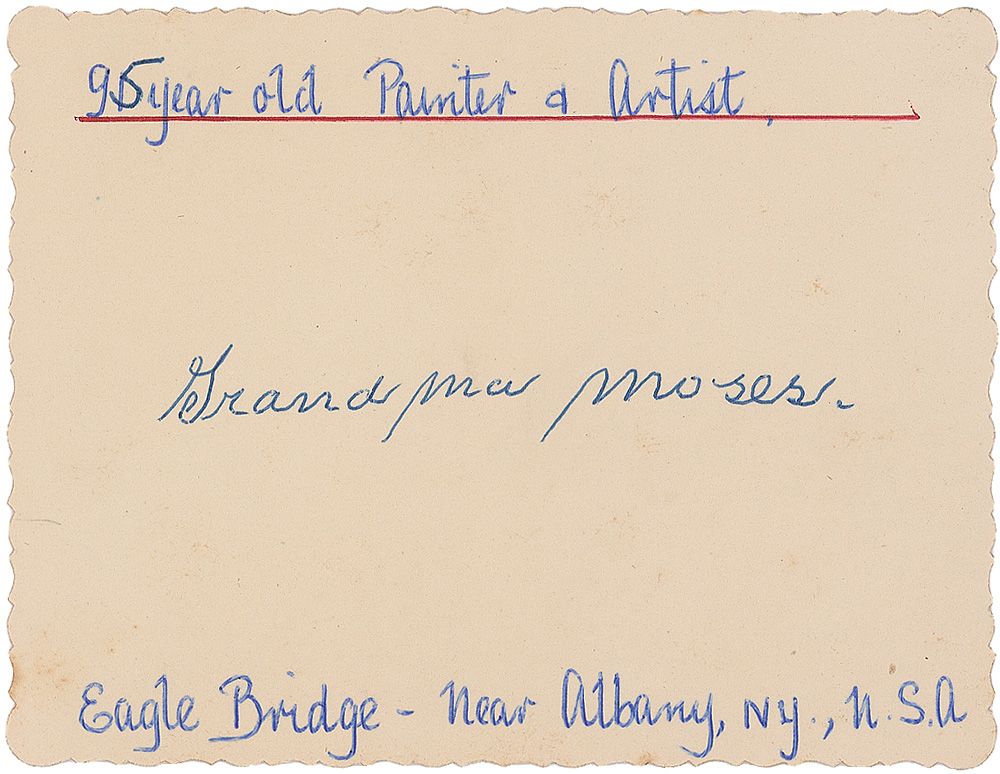 95 year old Painter & Artist,
Grandma Moses.
Eagle Bridge - Near Albany, NY., U.S.A